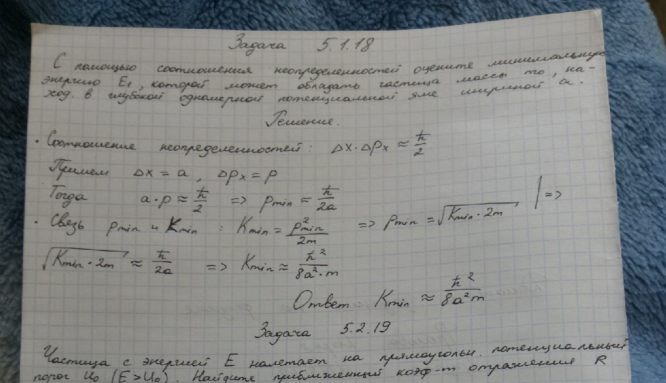 Задача 5.1.18
С помощью соотношения неопределенностей оцените минимальную
энергию E₁, которой может обладать частица массы m₀, на-
ход. в глубокой одномерной потенциальной яме шириной a.
Решение.
· Соотношение неопределенностей: Δx·Δpₓ ≈ ħ/2
Примем Δx = a, Δpₓ = p
Тогда a·p ≈ ħ/2 => pmin = ħ/2a
· Связь pmin и Kmin : Kmin = p²min/2m => pmin = √(Kmin·2m) | =>
√(Kmin·2m) ≈ ħ/2a => Kmin ≈ ħ²/8a²·m
Ответ Kmin ≈ ħ²/8a²m
Задача 5.2.19
Частица с энергией E налетает на прямоугольн. потенциальный
порог U₀ (E>U₀). Найдите приближенный коэф-т отражения R